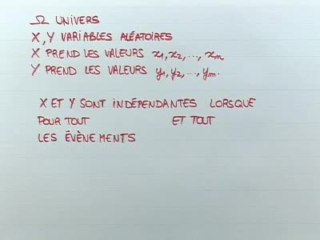 Ω UNIVERS
X, Y VARIABLES ALÉATOIRES
X PREND LES VALEURS x₁, x₂, ..., xₙ
Y PREND LES VALEURS y₁, y₂, ..., yₘ.
X ET Y SONT INDÉPENDANTES LORSQUE
POUR TOUT ET TOUT
LES ÉVÈNEMENTS